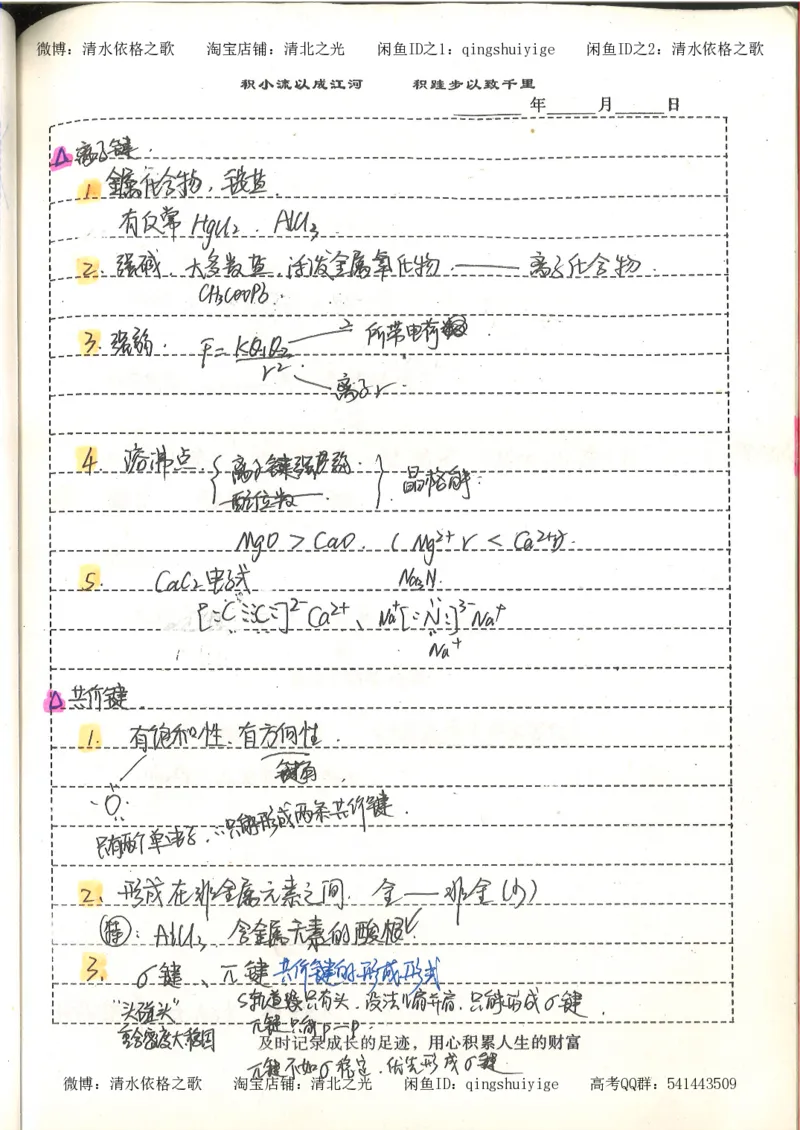 微博：清水依格之歌 淘宝店铺：清北之光 闲鱼ID之1：qingshuiyige 闲鱼ID之2：清水依格之歌
积小流以成江河 积跬步以致千里
年 月 日
△离子键.
1. 金属化合物, 铵盐.
有反常 HgCl2 . AlCl3
2. 强碱. 大多数盐. 活泼金属氧化物. —— 离子化合物.
CH3COOPb .
3. 强弱. F=KQ1Q2/r2 所带电荷
离子r.
4. 熔沸点. { 离子键强弱. } 晶格能.
配位数
MgO > CaO. ( Mg2+ r < Ca2+r).
5. CaC2 电子式 Na3N.
[:C⋮⋮C:]2- Ca2+ 、 Na+[:N:]3- Na+
Na+
△共价键.
1. 有饱和性、有方向性.
键角.
·O·
只有两个单电子, ∴只能形成两条共价键.
2. 形成在非金属元素之间. 金——非金(少)
(特): AlCl3 含金属元素的酸根✓
3. σ键、π键 共价键的形成形式
"头碰头" S轨道只有头, 没法肩并肩, 只能形成σ键.
重叠程度大稳固 π键只能p—p.
及时记录成长的足迹，用心积累人生的财富
π键不如σ稳定. 优先形成σ键.
微博：清水依格之歌 淘宝店铺：清北之光 闲鱼ID：qingshuiyige 高考QQ群：541443509